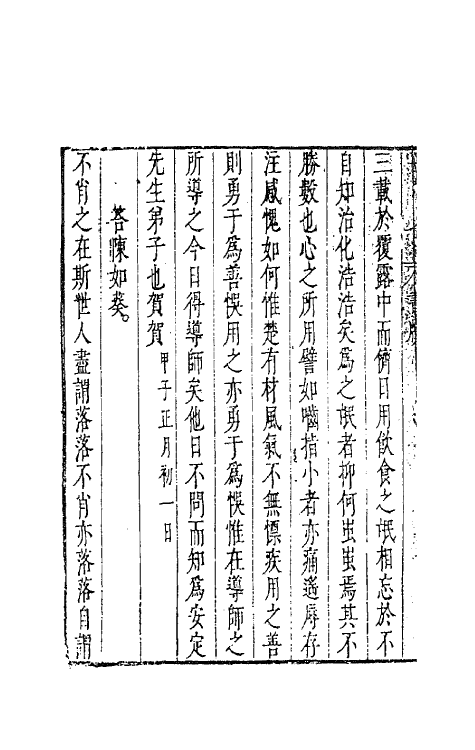 三載於覆露中而儕日用飲食之氓相忘於不
自知治化浩浩矣為之氓者抑何虫虫焉其不
勝數也心之所用譬如嚙指小者亦痛遙辱存
注感愧如何惟楚有材風氣不無慓疾用之善
則勇于為善悞用之亦勇于為悞惟在導師之
所導之今日得導師矣他日不問而知為安定
先生弟子也賀賀 甲子正月初一日
答陳如葵。
不肖之在斯世人盡謂落落不肖亦落落自謂